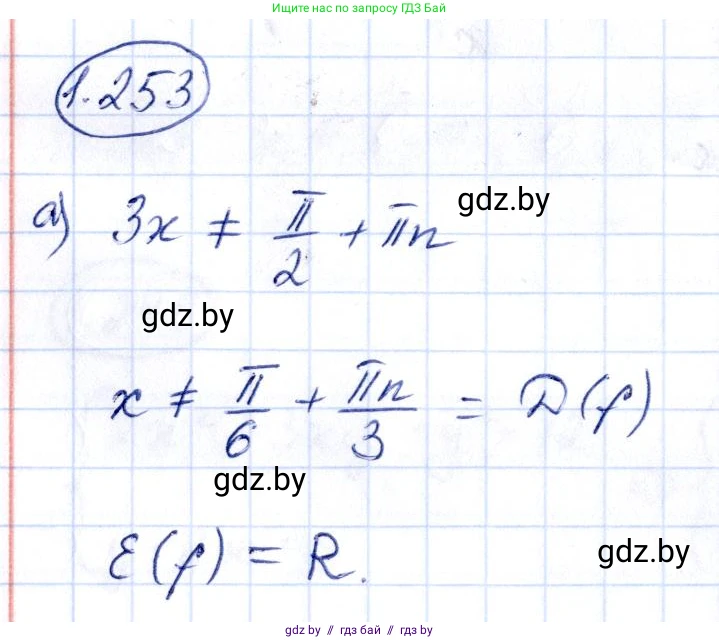 Ищите нас по запросу ГДЗ Бай
1.253
а) 3x ≠ π/2 + πn
gdz.by
gdz.by
x ≠ π/6 + πn/3 = D(f)
gdz.by
E(f) = R.
gdz.by
gdz.by // гдз бай // гдз by